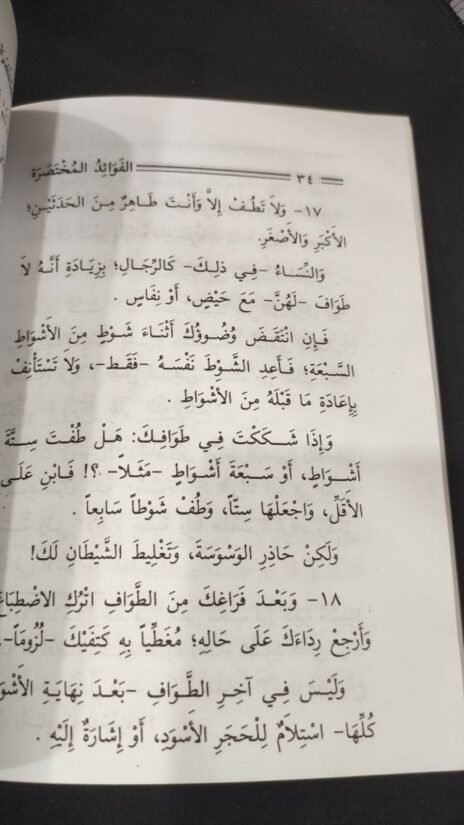 ٣٤ الفَوَائِدُ المُخْتَصَرَة
١٧- وَلاَ تَطُفْ إِلاَّ وَأَنْتَ طَاهِرٌ مِنَ الحَدَثَيْنِ؛
الأَكْبَرِ وَالأَصْغَرِ.
وَالنِّسَاءُ -فِي ذلِكَ- كَالرِّجَالِ؛ بِزِيَادَةِ أَنَّهُ لاَ
طَوَافَ -لَهُنَّ- مَعَ حَيْضٍ، أَوْ نِفَاسٍ .
فَإِنِ انْتَقَضَ وُضُوؤُكَ أَثْنَاءَ شَوْطٍ مِنَ الأَشْوَاطِ
السَّبْعَةِ؛ فَأَعِدِ الشَّوْطَ نَفْسَهُ -فَقَط-، وَلاَ تَسْتَأْنِفْ
بِإِعَادَةِ مَا قَبْلَهُ مِنَ الأَشْوَاطِ .
وَإِذَا شَـكَكْتَ فِي طَوَافِكَ: هَلْ طُفْتَ سِتَّةَ
أَشْوَاطٍ، أَوْ سَبْعَةَ أَشْوَاطٍ -مَثَلاً- ؟! فَابْنِ عَلَى
الأَقَلِّ، وَاجْعَلْهَا سِتّاً، وَطُفْ شَوْطاً سَابِعاً .
وَلَكِنْ حَاذِرِ الوَسْوَسَةَ، وَتَغْلِيطَ الشَّيْطَانِ لَكَ!
١٨- وَبَعْدَ فَرَاغِكَ مِنَ الطَّوَافِ اتْرُكِ الاضْطِبَاعَ
وَأَرْجِعْ رِدَاءَكَ عَلَى حَالِهِ؛ مُغَطِّياً بِهِ كَتِفَيْكَ -لُزُوماً-.
وَلَيْسَ فِي آخِرِ الطَّوَافِ -بَعْدَ نِهَايَةِ
كُلِّهَا- اسْتِلاَمٌ لِلْحَجَرِ الأَسْوَدِ، أَوْ إِشَارَةٌ إِلَيْهِ .